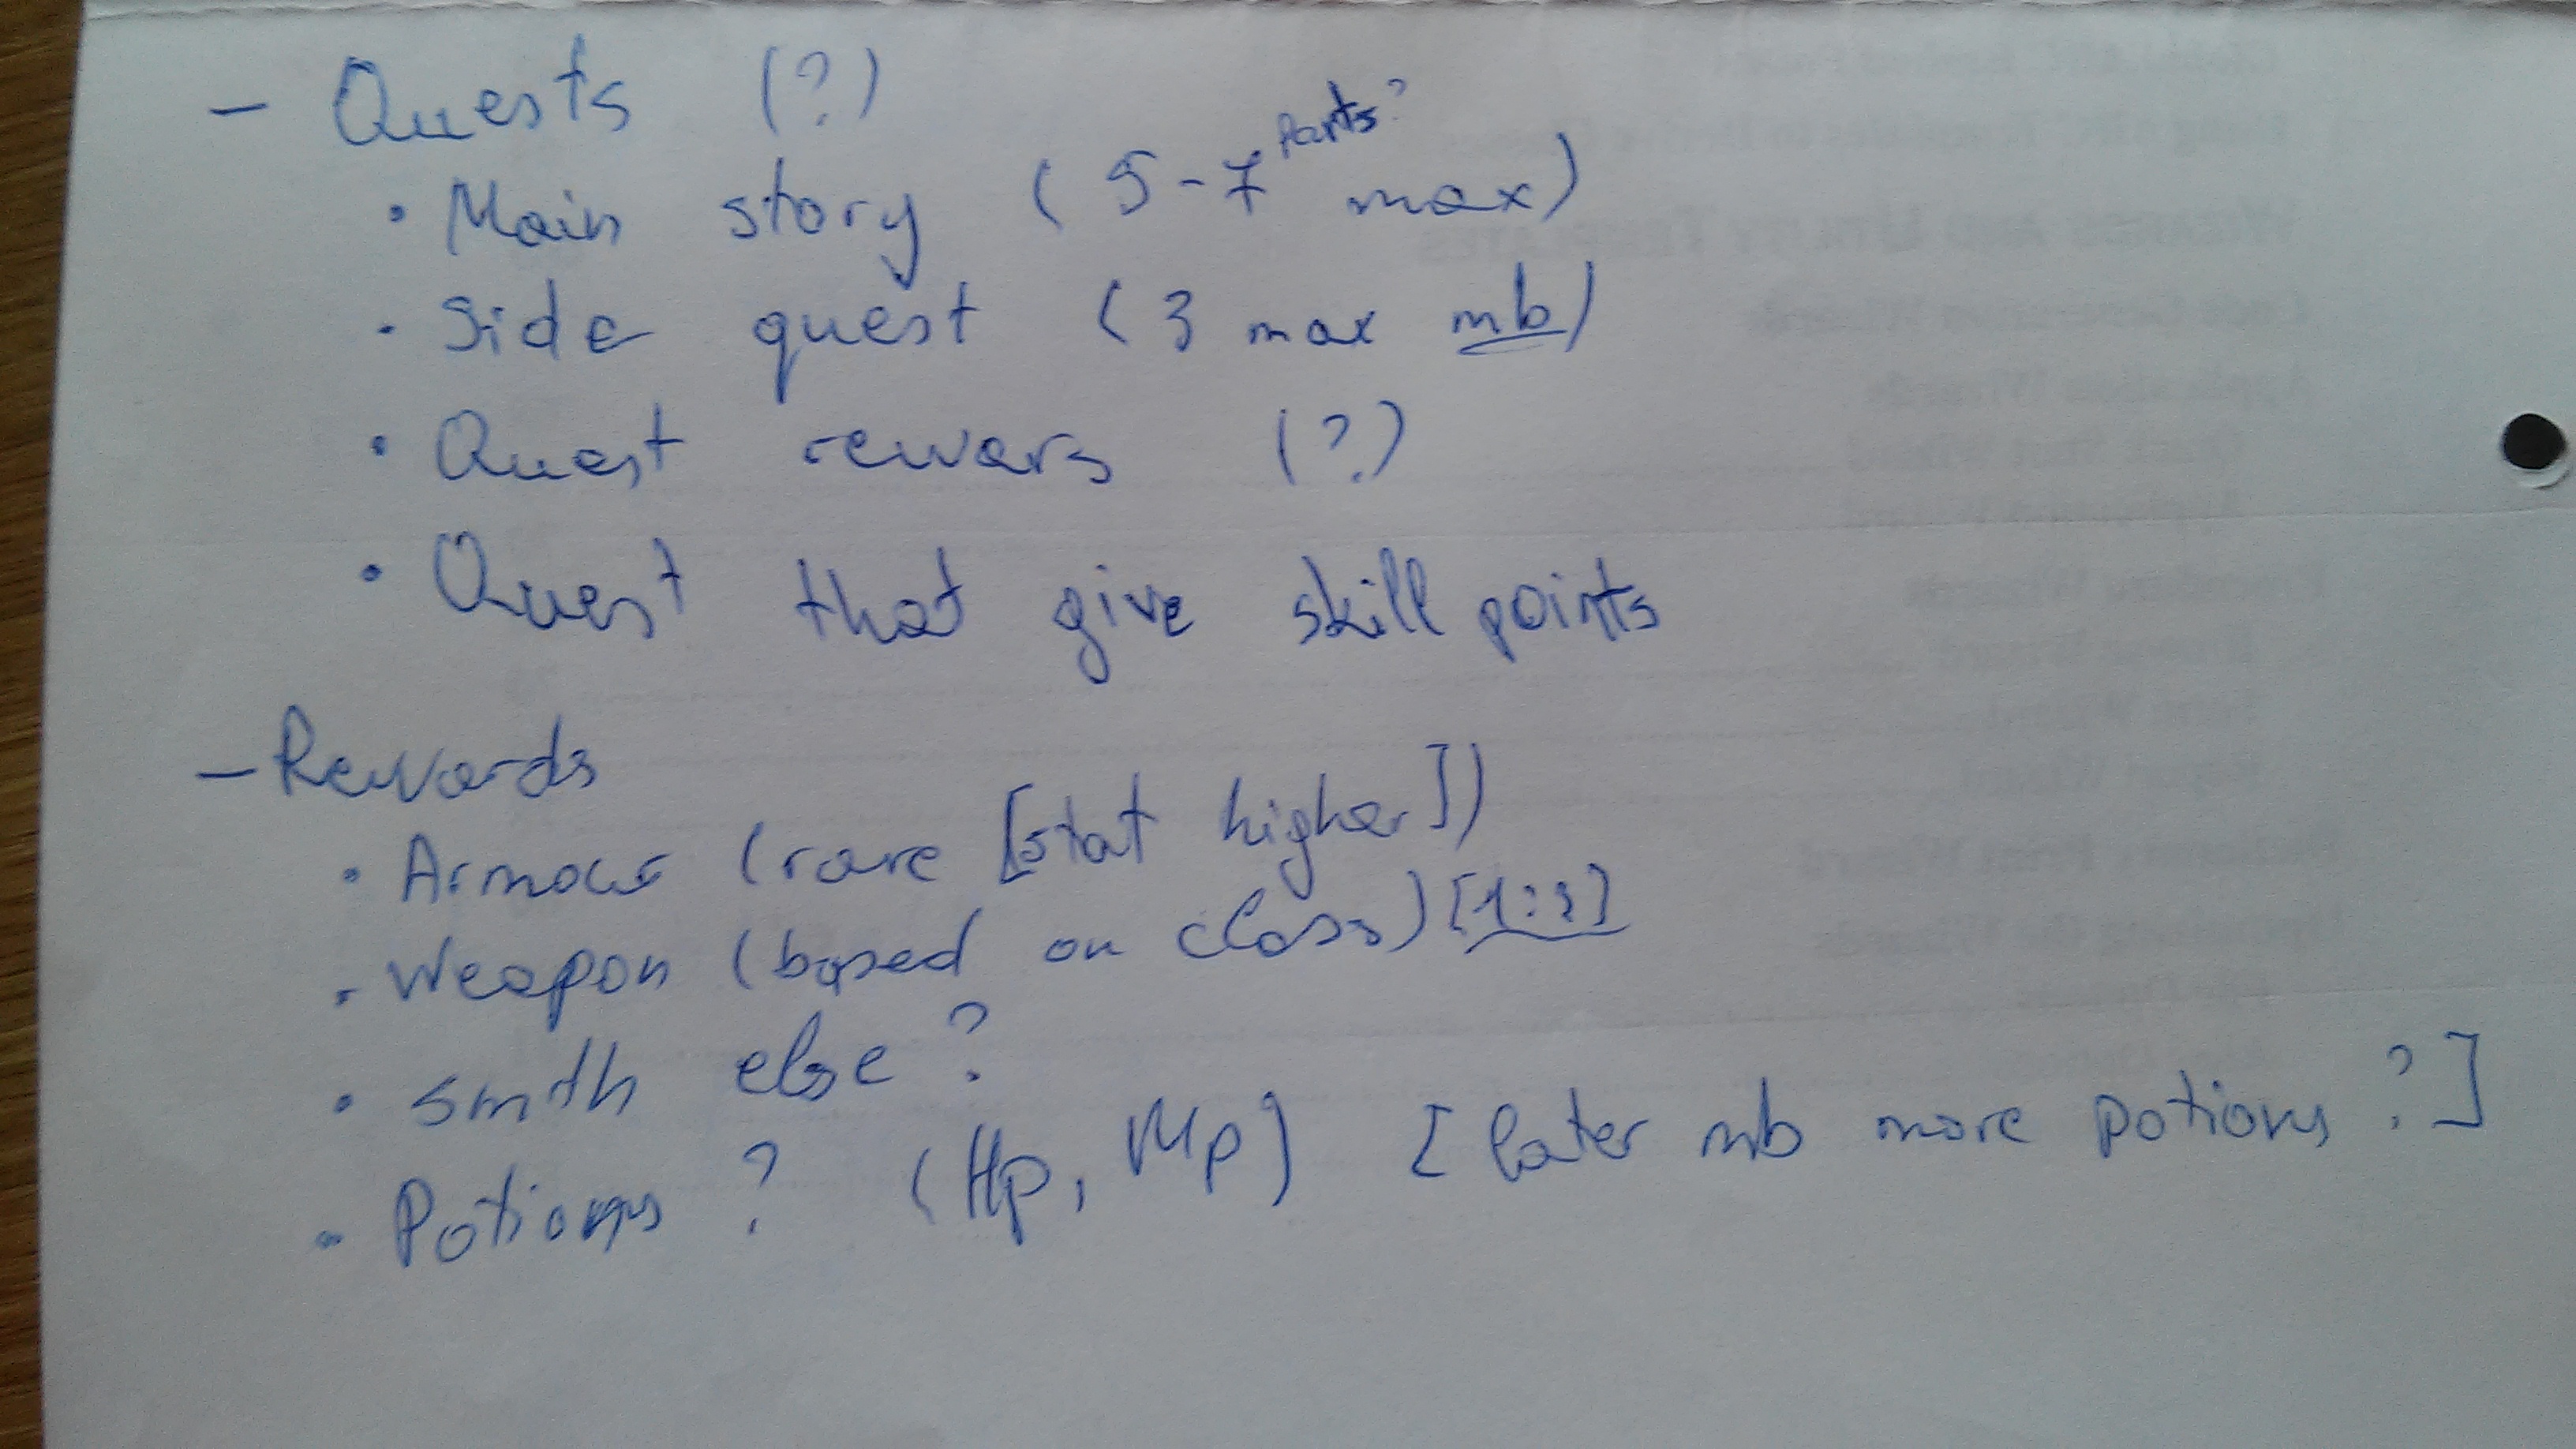 - Quests (?)
• Main story (5-7 parts? max)
• Side quest (3 max mb)
• Quest rewars (?)
• Quest that give skill points
- Rewards
• Armour (rare [stat higher])
• Weapon (based on class) [1:?]
• smth else?
• Potions? (Hp, Mp) [later mb more potions?]